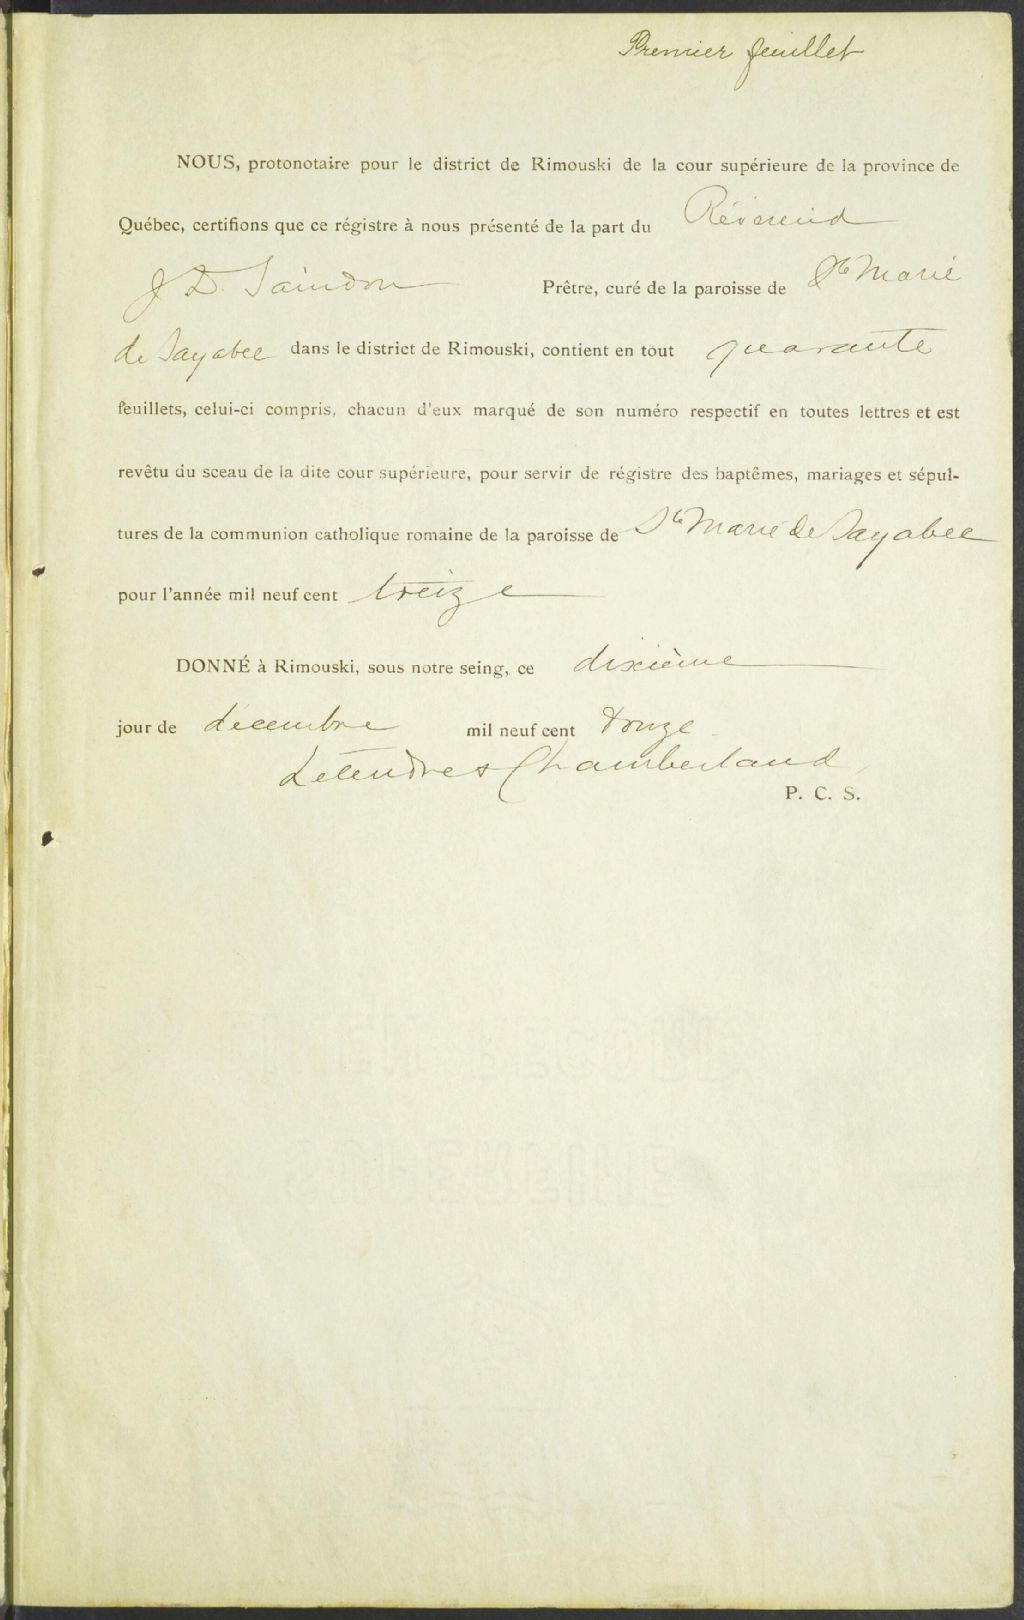 Premier feuillet
NOUS, protonotaire pour le district de Rimouski de la cour supérieure de la province de
Québec, certifions que ce régistre à nous présenté de la part du Révérend
J D. Saindon Prêtre, curé de la paroisse de Ste Marie
de Sayabec dans le district de Rimouski, contient en tout quarante
feuillets, celui-ci compris, chacun d'eux marqué de son numéro respectif en toutes lettres et est
revêtu du sceau de la dite cour supérieure, pour servir de régistre des baptêmes, mariages et sépul-
tures de la communion catholique romaine de la paroisse de Ste Marie de Sayabec
pour l'année mil neuf cent treize
DONNÉ à Rimouski, sous notre seing, ce dixième
jour de décembre mil neuf cent douze
Letendre & Chamberland,
P. C. S.